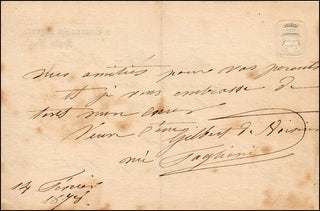 mes amitiés pour vos parents
et je vous embrasse de
tout mon cœur
Gilbert de Voisins
née Taglioni
14 Février
187